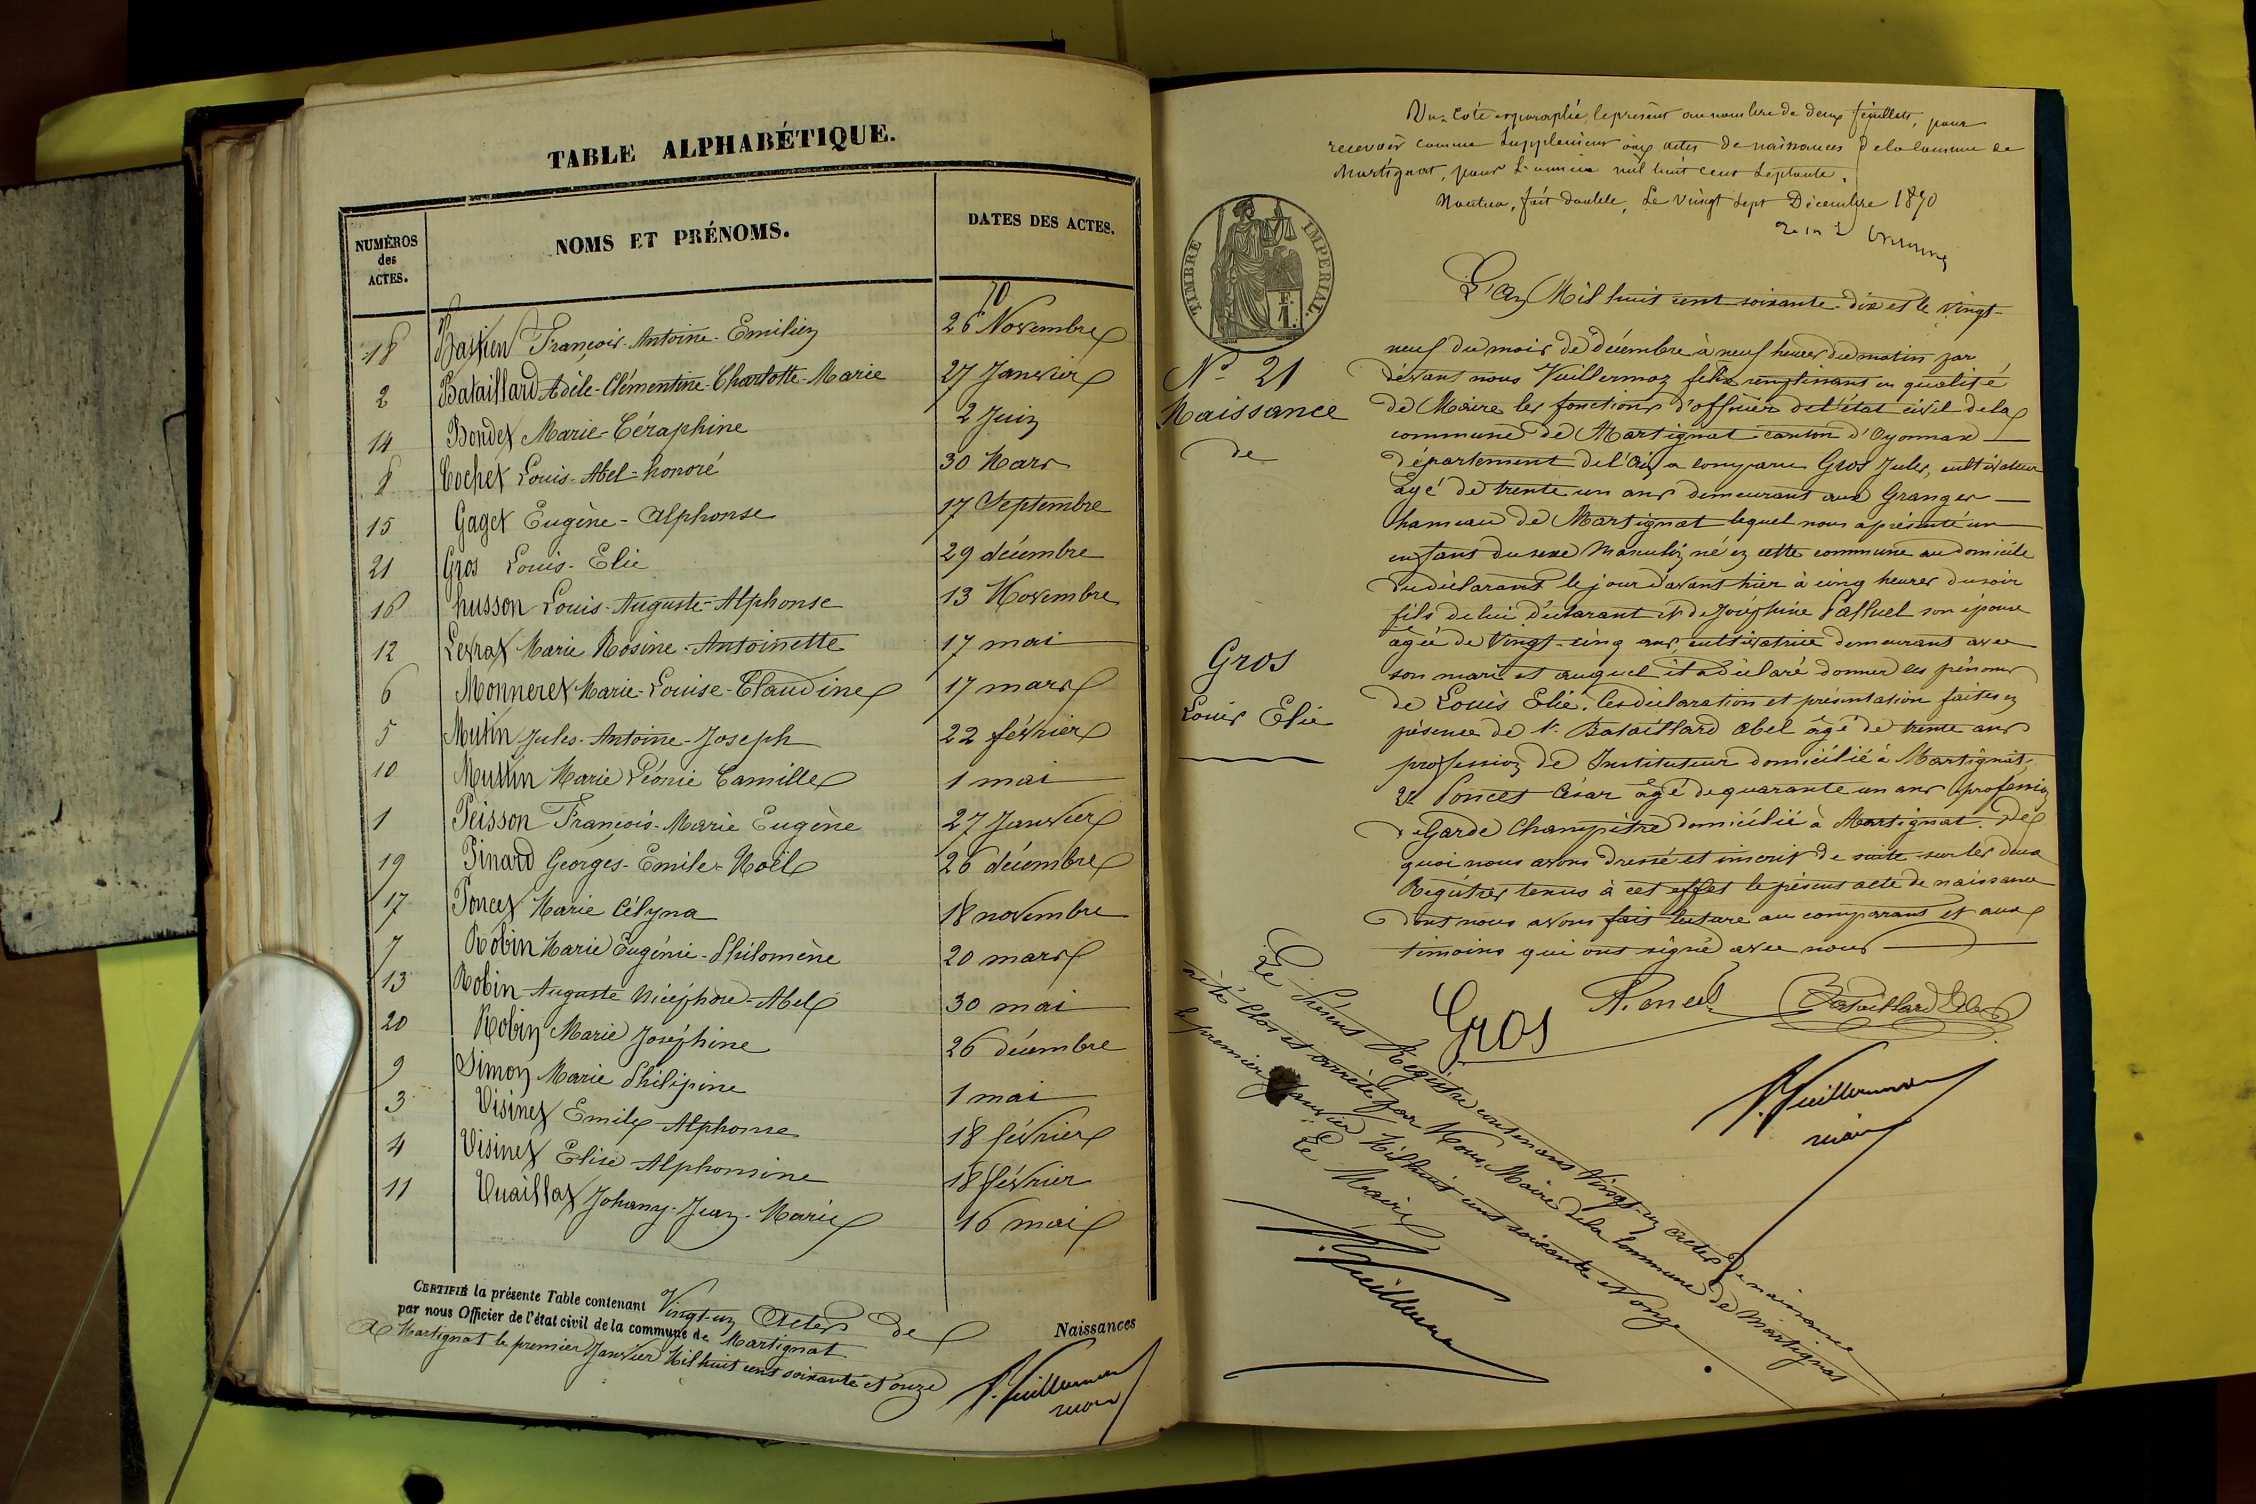 TABLE ALPHABÉTIQUE.
NUMÉROS des ACTES. NOMS ET PRÉNOMS. DATES DES ACTES.
70
18 Bastien François-Antoine-Emilien 26 Novembre
2 Bataillard Adèle-Clémentine-Charlotte-Marie 27 Janvier
14 Bondet Marie-Céraphine 2 Juin
8 Cochet Louis-Abel-honoré 30 Mars
15 Gaget Eugène-Alphonse 17 Septembre
21 Gros Louis-Elie 29 décembre
16 husson Louis-Auguste-Alphonse 13 Novembre
12 Levrat Marie Rosine-Antoinette 17 mai
6 Monneret Marie-Louise-Claudine 17 mars
5 Mutin Jules-Antoine-Joseph 22 février
10 Muttin Marie Léonie Camille 1 mai
1 Peisson François-Marie Eugène 27 Janvier
19 Pinard Georges-Emile-Noël 26 décembre
17 Poncet Marie Célyna 18 novembre
7 Robin Marie Eugénie-Philomène 20 mars
13 Robin Auguste Nicéphore-Abel 30 mai
20 Robin Marie Joséphine 26 décembre
9 Simon Marie Philipine 1 mai
3 Visinet Emile Alphonse 18 février
4 Visinet Elise Alphonsine 18 février
11 Vuaillat Johany-Juan-Marie 16 mai
CERTIFIÉ la présente Table contenant Vingt-un Actes de Naissances
par nous Officier de l'état civil de la commune de Martignat
A Martignat le premier Janvier Mil huit cent soixante et onze
Vu, Coté et paraphé, le présent au nombre de deux feuillets, pour
recevoir comme Supplément aux actes de naissances de la Commune de
Martignat, pour l'année mil huit cent septante.
Nantua, fait double, le vingt sept Décembre 1870
TIMBRE IMPÉRIAL.
N° 21
Naissance
de
Gros
Louis Elie
L'an Mil huit cent soixante-dix et le vingt-
neuf du mois de décembre à neuf heures du matin par
devant nous Vuillermoz felix remplissant en qualité
de Maire les fonctions d'officier de l'état civil de la
commune de Martignat canton d'Oyonnax
département de l'Ain a comparu Gros Jules, cultivateur
âgé de trente un ans demeurant aux Granges
hameau de Martignat lequel nous a présenté un
enfant du sexe Masculin né en cette commune au domicile
du déclarant le jour d'avant hier à cinq heures du soir
fils de lui déclarant et de Joséphine son épouse
âgée de Vingt-cinq ans, cultivatrice demeurant avec
son mari et auquel il a déclaré donner les prénoms
de Louis Elie. Ces déclaration et présentation faites en
présence de 1° Bataillard Abel âgé de trente ans
profession de Instituteur domicilié à Martignat,
2° Poncet César âgé de quarante un ans profession
de Garde Champêtre domicilié à Martignat. De
quoi nous avons dressé et inscrit de suite sur les deux
Registres tenus à cet effet le présent acte de naissance
dont nous avons fait lecture au comparant et aux
témoins qui ont signé avec nous
Gros
Poncet
Bataillard Abel
Vuillermoz
maire
Le Présent Registre contenant Vingt-un actes de naissance
a été Clos et arrêté par Nous, Maire de la Commune de Martignat
le premier Janvier Mil huit cent soixante et onze
Le Maire
Vuillermoz